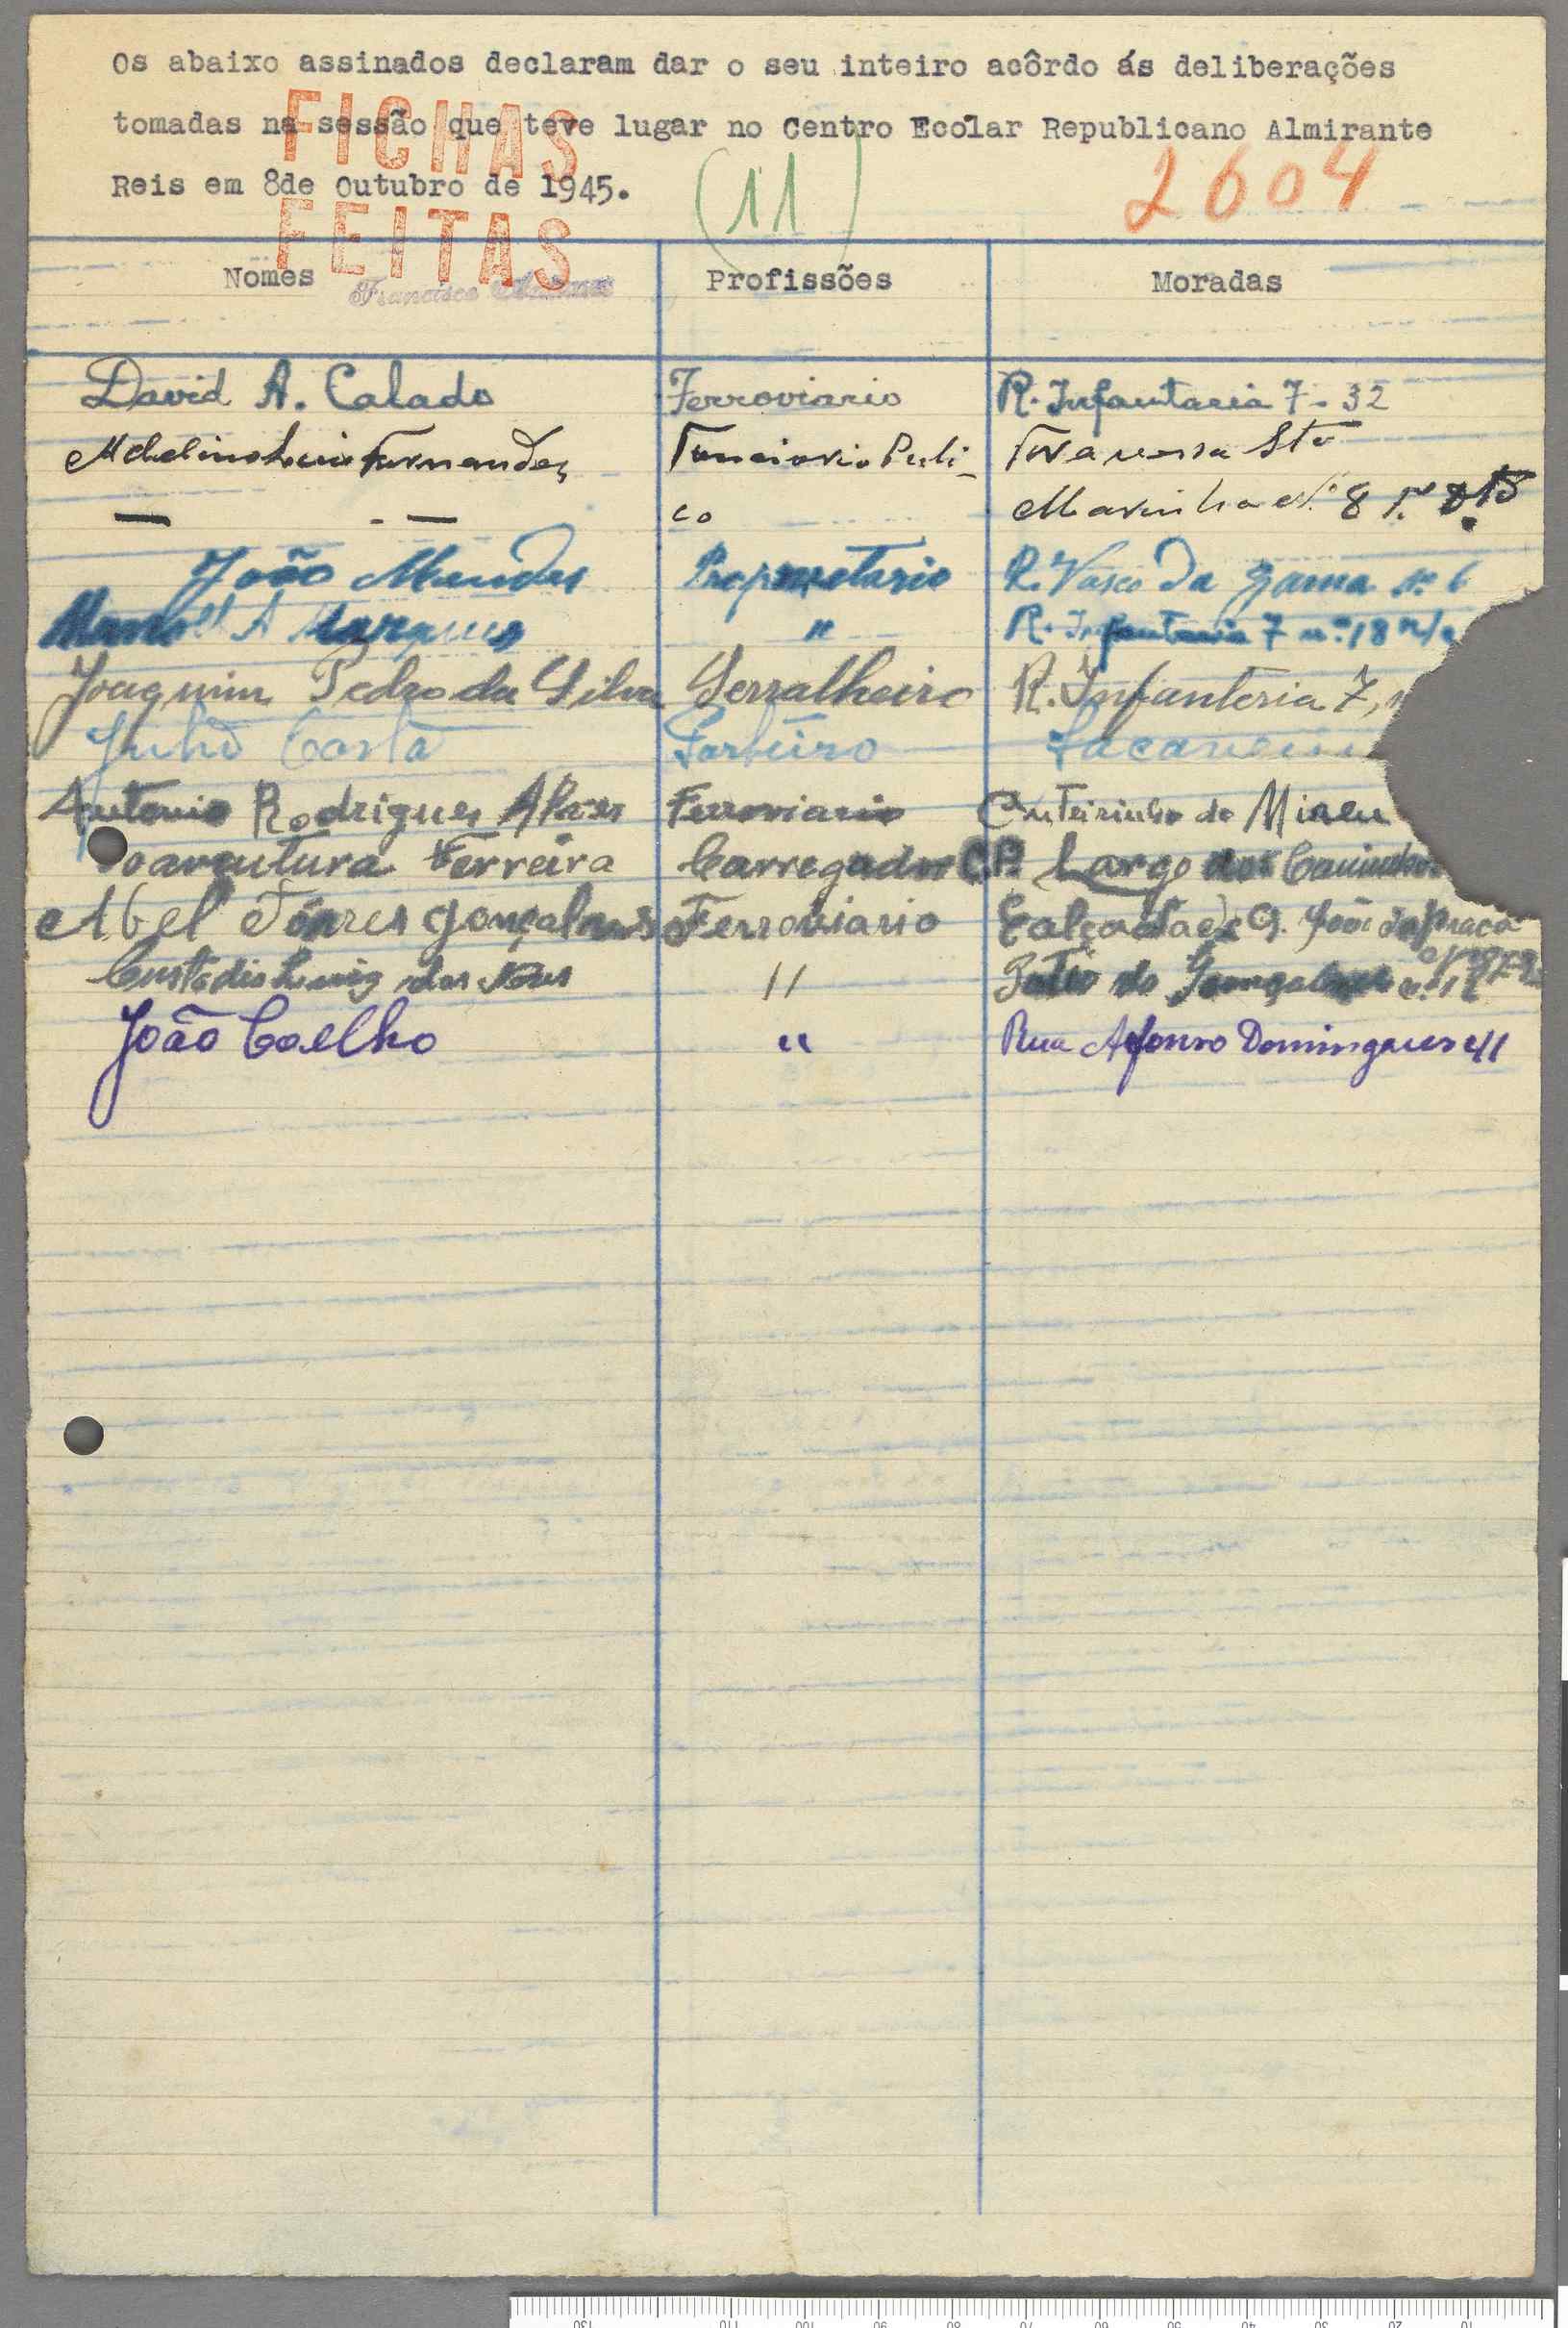 Os abaixo assinados declaram dar o seu inteiro acôrdo ás deliberações
tomadas na sessão que teve lugar no Centro Ecolar Republicano Almirante
Reis em 8de Outubro de 1945.
FICHAS
FEITAS
(11)
2604
Nomes Profissões Moradas
Francisco
David A. Calado Ferroviario R. Infantaria 7 - 32
Fernandes Funcionario Publi- Travessa Sta
— - — co Marinha Nº 8 1º
João Mendes Proprietario R. Vasco da Gama nº 6
Manoel A Marques " R. Infantaria 7 nº 18
Joaquim Pedro da Silva Serralheiro R. Infanteria 7,
Julio Costa Barbeiro Sacavem
Antonio Rodrigues Alves Ferroviario do
Boaventura Ferreira Carregador C.P. Largo dos
Abel Tôrres Gonçalves Ferroviario Calçada de S. João da Praça
Custodio Luiz das Neves " Patio do Gonçalves
João Coelho " Rua Afonso Domingues 41